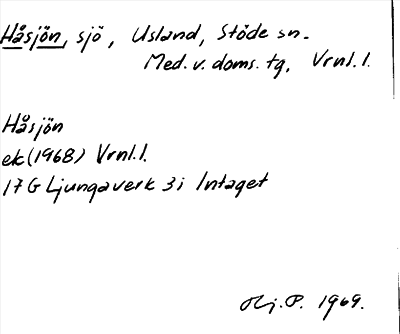 Håsjön, sjö, Usland, Stöde sn.
Med. v. doms. tg, Vrnl. l.
Håsjön
ek (1968) Vrnl. l.
17 G Ljungaverk 3i Intaget
P. 1969.